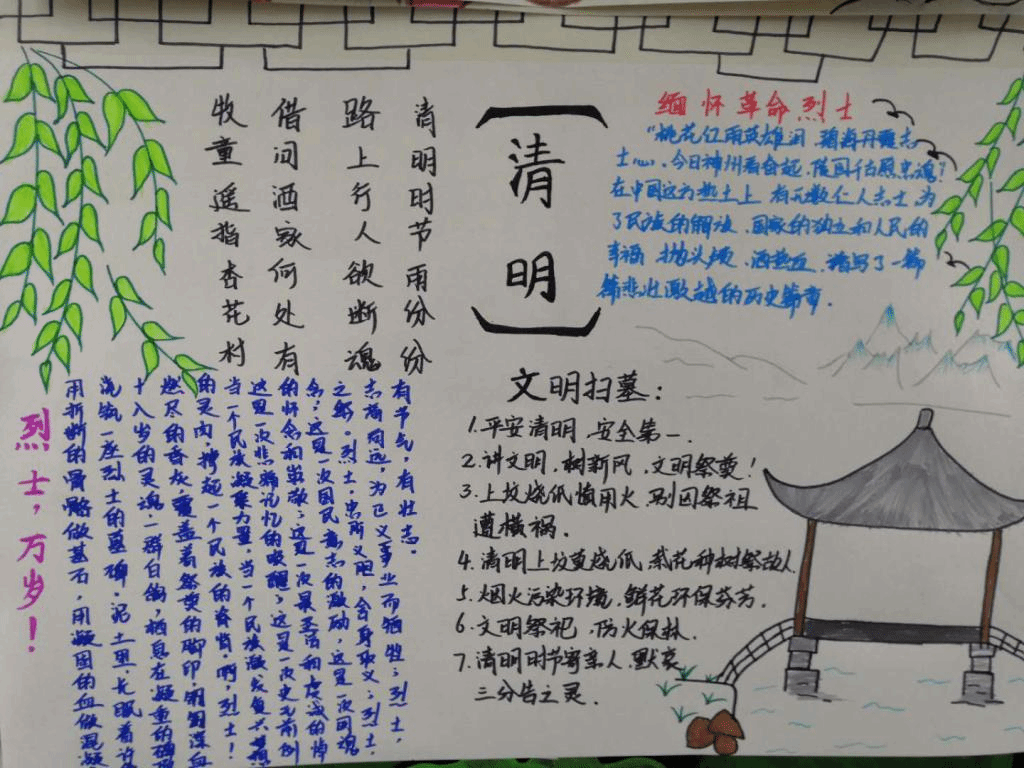 清明时节雨份份
路上行人欲断魂
借问酒家何处有
牧童遥指杏花村
清明
缅怀革命烈士
"桃花红雨英雄洞 碧海丹霞志
士心,今日神州看奋起,陵园千古照忠魂!
在中国这方热土上 有无数仁人志士 为
了民族的解放,国家的独立和人民的
幸福 抛头颅,洒热血,谱写了一篇
篇悲壮激越的历史篇章.
文明扫墓:
1.平安清明,安全第一.
2.讲文明,树新风,文明祭奠!
3.上坟烧纸慎用火,别因祭祖
遭横祸.
4.清明上坟莫烧纸,献花种树祭故人
5.烟火污染环境,鲜花环保芬芳.
6.文明祭祀,防火保林.
7.清明时节寄亲人,默哀
三分告之灵.
有节气,有壮志。
志高同远,为正义事业而牺牲;烈士,
之躯 烈士,忠肝义胆,舍身取义;烈士,
念;这是一次国民意志的激励,这是一次国魂
的怀念和崇敬;这是一次最圣洁和虔诚的悼
这是一次悲痛记忆的唤醒;这是一次史无前例
当一个民族凝聚力量,当一个民族激发复兴
的灵肉,撑起一个民族的脊梁,啊,烈士!
燃尽的香灰,覆盖着祭奠的脚印,深血
十八岁的灵魂,一群白鸽,栖息在凝重的碑
浇筑一座烈士的墓碑,泥土里,长眠着许
用折断的骨骼做基石,用凝固的血做混凝
烈士,万岁!